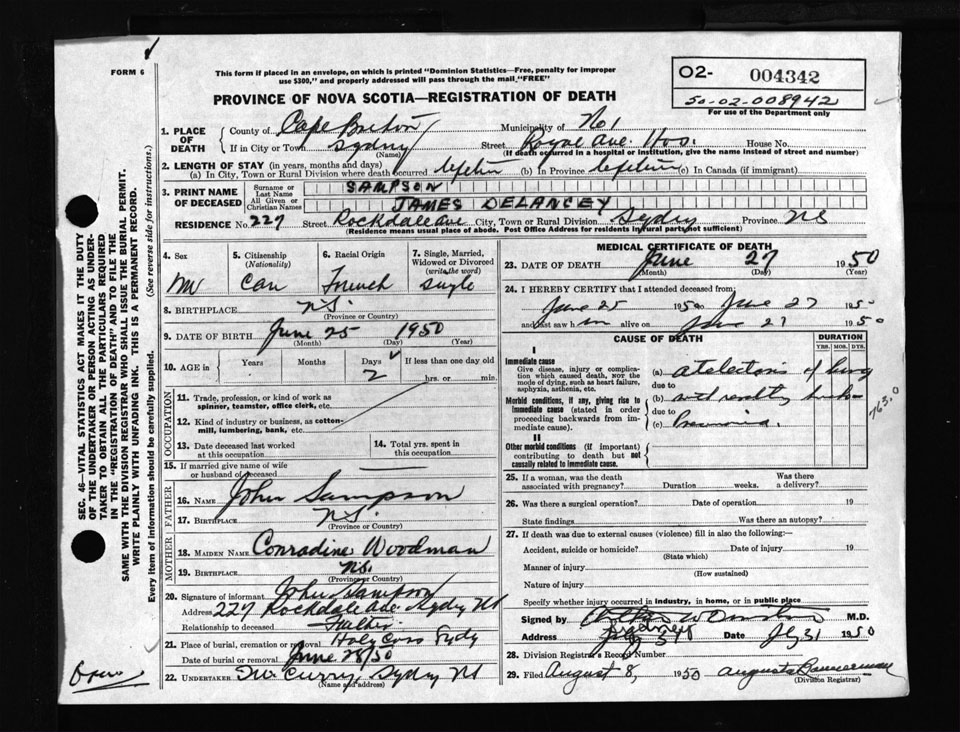 FORM 6
This form if placed in an envelope, on which is printed "Dominion Statistics—Free, penalty for improper
use $300," and properly addressed will pass through the mail "FREE"
PROVINCE OF NOVA SCOTIA—REGISTRATION OF DEATH
O2- 004342
50-02-008942
For use of the Department only
SEC. 46—VITAL STATISTICS ACT MAKES IT THE DUTY
OF THE UNDERTAKER OR PERSON ACTING AS UNDER-
TAKER TO OBTAIN ALL THE PARTICULARS REQUIRED
IN THE "REGISTRATION OF DEATH" AND TO FILE THE
SAME WITH THE DIVISION REGISTRAR WHO SHALL ISSUE THE BURIAL PERMIT.
WRITE PLAINLY WITH UNFADING INK. THIS IS A PERMANENT RECORD.
Every item of information should be carefully supplied. (See reverse side for instructions.)
1. PLACE OF DEATH
County of Cape Breton Municipality of No 1
If in City or Town Sydney (Name) Street Royal Ave Hos. House No.
(If death occurred in a hospital or institution, give the name instead of street and number)
2. LENGTH OF STAY (in years, months and days)
(a) In City, Town or Rural Division where death occurred lifetim (b) In Province lifetim (c) In Canada (if immigrant)
3. PRINT NAME OF DECEASED
Surname or Last Name SAMPSON
All Given or Christian Names JAMES DELANCEY
RESIDENCE No. 227 Street Rockdale Ave City, Town or Rural Division Sydney Province NS
(Residence means usual place of abode. Post Office Address for Residents in rural parts not sufficient)
4. Sex M
5. Citizenship (Nationality) Can
6. Racial Origin French
7. Single, Married, Widowed or Divorced (write the word) single
8. BIRTHPLACE NS. (Province or Country)
9. DATE OF BIRTH June 25 1950
(Month) (Day) (Year)
10. AGE in Years Months Days 2 If less than one day old hrs. or min.
OCCUPATION
11. Trade, profession, or kind of work as
spinner, teamster, office clerk, etc.
12. Kind of industry or business, as cotton-
mill, lumbering, bank, etc.
13. Date deceased last worked
at this occupation
14. Total yrs. spent in
this occupation
15. If married give name of wife
or husband of deceased
FATHER
16. NAME John Sampson
17. BIRTHPLACE NS. (Province or Country)
MOTHER
18. MAIDEN NAME Conradine Woodman
19. BIRTHPLACE NS. (Province or Country)
20. Signature of informant John Sampson
Address 227 Rockdale Ave. Sydney NS
Relationship to deceased Father
21. Place of burial, cremation or removal Holy Cross Sydy
Date of burial or removal June 28/50
22. UNDERTAKER Curry, Sydney NS
(Name and address)
MEDICAL CERTIFICATE OF DEATH
23. DATE OF DEATH June 27 1950
(Month) (Day) (Year)
24. I HEREBY CERTIFY that I attended deceased from:
June 25 1950 June 27 1950
and last saw him alive on June 27 1950
CAUSE OF DEATH DURATION
YRS. MOS. DYS.
I
Immediate cause
Give disease, injury or complica-
tion which caused death, NOR the
mode of dying, such as heart failure,
asphyxia, asthenia, etc.
Morbid conditions, if any, giving rise to
immediate cause (stated in order
proceeding backwards from im-
mediate cause).
II
Other morbid conditions (if important)
contributing to death but not
causally related to immediate cause.
(a) atelectasis of lung
due to
(b) with resulting
due to
(c) Pneumonia.
763.0
25. If a woman, was the death
associated with pregnancy? Duration weeks. Was there
a delivery?
26. Was there a surgical operation? Date of operation 19
State findings Was there an autopsy?
27. If death was due to external causes (violence) fill in also the following:
Accident, suicide or homicide? Date of injury 19
(State which)
Manner of injury
(How sustained)
Nature of injury
Specify whether injury occurred in industry, in home, or in public place
Signed by M.D.
Address Sydney NS Date Jly 31 1950
28. Division Registrar's Record Number
29. Filed August 8, 1950
(Division Registrar)